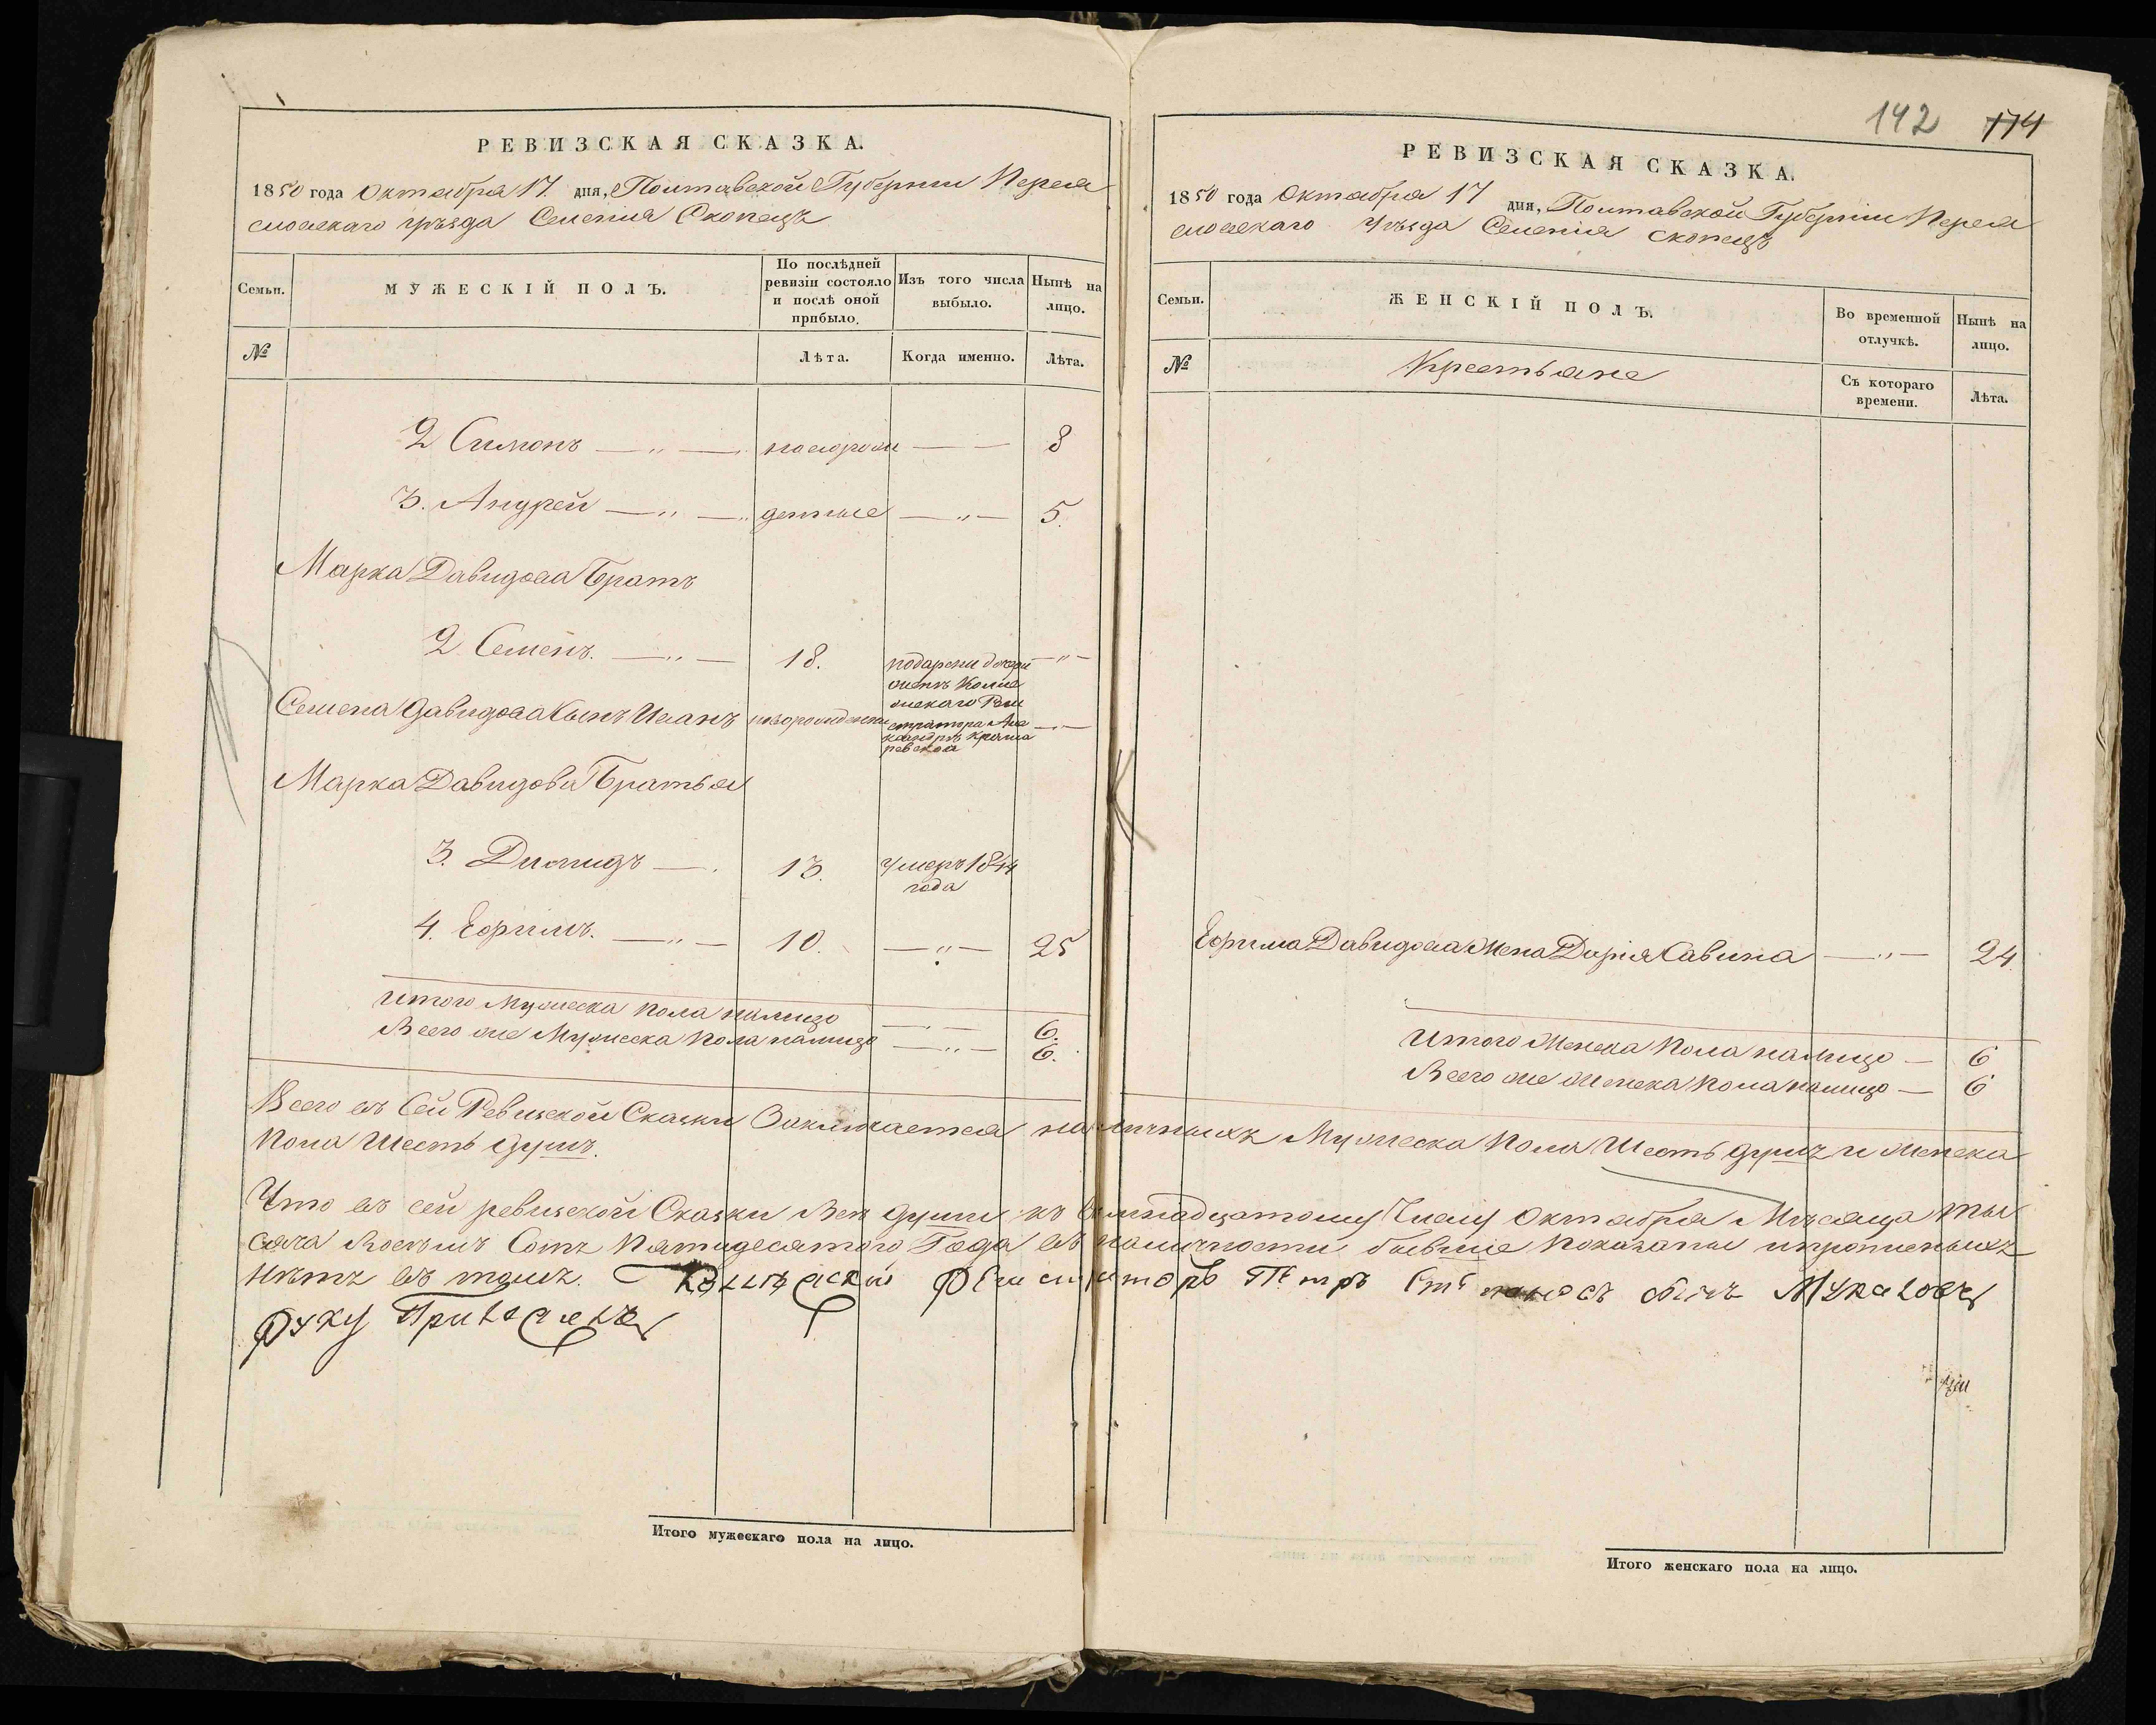 РЕВИЗСКАЯ СКАЗКА.
1850 года Октября 17. дня, Полтавской Губернии Перея
словскаго уѣзда Селенія Скопецъ
Семьи.
МУЖЕСКІЙ ПОЛЪ.
По послѣдней ревизіи состояло и послѣ оной прибыло.
Изъ того числа выбыло.
Нынѣ на лицо.
№
Лѣта.
Когда именно.
Лѣта.
2 Симонъ — „ — новорож — — 8
3. Андрей — „ — денные — „ — 5.
Марка Давидова Братъ
2 Семенъ. — „ — 18. подарени дочери — „ —
Семена Давидова Сынъ Иванъ новорожденны
Марка Давидова Братья
3. Диомидъ — . 13. Умеръ 1844
года
4. Ефимъ. — „ — 10. — „ — 25
Итого Мужеска пола налицо — „ — 6.
Всего же Мужеска пола налицо — „ — 6.
142 174
РЕВИЗСКАЯ СКАЗКА.
1850 года Октября 17 дня, Полтавской Губерніи Перея
словскаго Уѣзда Селенія Скопецъ
Семьи.
ЖЕНСКІЙ ПОЛЪ.
Во временной отлучкѣ.
Нынѣ на лицо.
№
Крестьяне
Съ котораго времени.
Лѣта.
Ефима Давидова Жена Дарія Савина — „ — 24.
Итого Женска Пола налицо — 6
Всего же Женска пола налицо — 6
Всего въ Сей Ревизской Сказки Заключается наличныхъ Мужеска Пола Шесть душъ и Женска
Пола Шесть Душъ.
Что въ сей ревизской Сказки Всѣ души къ Семнадцатому Числу Октября Мѣсяца Ты
сяча Восемъ Сотъ Пятидесятого Года въ наличности бывшие показаны и прописныхъ
нѣтъ въ томъ. Коллежский Регистраторъ Петръ сынъ
Руку Приложилъ
Итого мужескаго пола на лицо.
Итого женскаго пола на лицо.